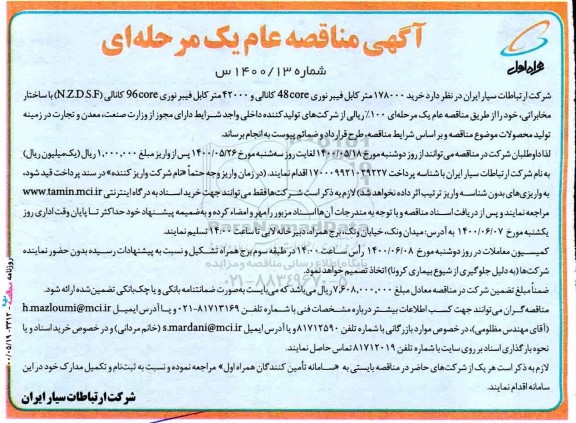 آگهی مناقصه عام یک مرحله‌ای
همراه اول
شماره ۱۴۰۰/۱۳ س
شرکت ارتباطات سیار ایران در نظر دارد خرید ۱۷۸۰۰۰ متر کابل فیبر نوری 48core کانالی و ۴۲۰۰۰ متر کابل فیبر نوری 96core کانالی (N.Z.D.S.F) با ساختار
مخابراتی، خود را از طریق مناقصه عام یک مرحله‌ای ۱۰۰٪ ریالی از شرکت‌های تولیدکننده داخلی واجد شرایط دارای مجوز از وزارت صنعت، معدن و تجارت در زمینه
تولید محصولات موضوع مناقصه و بر اساس شرایط مناقصه، طرح قرارداد و ضمائم پیوست به انجام برساند.
لذا داوطلبان شرکت در مناقصه می‌توانند از روز دوشنبه مورخ ۱۴۰۰/۰۵/۱۸ لغایت روز سه‌شنبه مورخ ۱۴۰۰/۰۵/۲۶ پس از واریز مبلغ ۱,۰۰۰,۰۰۰ ریال (یک میلیون ریال)
به نام شرکت ارتباطات سیار ایران با شناسه پرداخت ۱۷۰۰۰۹۹۲۱۰۲۹۲۲۷ اقدام نمایند. (در زمان واریز وجه حتماً «نام شرکت واریز کننده» در سند پرداخت قید شود،
به واریزی‌های بدون شناسه واریز ترتیب اثر داده نخواهد شد) لازم به ذکر است شرکت‌ها فقط می‌توانند جهت خرید اسناد به درگاه اینترنتی www.tamin.mci.ir
مراجعه نمایند و پس از دریافت اسناد مناقصه و با توجه به مندرجات آن‌ها اسناد مزبور را مهر و امضاء کرده و به ضمیمه پیشنهاد خود حداکثر تا پایان وقت اداری روز
یکشنبه مورخ ۱۴۰۰/۰۶/۰۷ به آدرس: میدان ونک، خیابان ونک، برج همراه، دبیرخانه لابی تا ساعت ۱۴:۰۰ تسلیم نمایند.
کمیسیون معاملات در روز دوشنبه مورخ ۱۴۰۰/۰۶/۰۸ رأس ساعت ۱۴:۰۰ در طبقه سوم برج همراه تشکیل و نسبت به پیشنهادات رسیده بدون حضور نماینده
شرکت‌ها (به دلیل جلوگیری از شیوع بیماری کرونا) اتخاذ تصمیم خواهد نمود.
ضمناً مبلغ تضمین شرکت در مناقصه معادل مبلغ ۷,۶۰۸,۰۰۰,۰۰۰ ریال می‌باشد که می‌بایست به صورت ضمانتنامه بانکی و یا چک بانکی تضمین شده ارائه شود.
مناقصه‌گران می‌توانند جهت کسب اطلاعات بیشتر درباره مشخصات فنی با شماره تلفن ۸۱۷۱۳۱۶۹-۰۲۱ و یا آدرس ایمیل h.mazloumi@mci.ir
(آقای مهندس مظلومی)، در خصوص موارد بازرگانی با شماره تلفن ۸۱۷۱۲۵۹۰ و یا آدرس ایمیل s.mardani@mci.ir (خانم مردانی) و در خصوص خرید اسناد و یا
نحوه بارگذاری اسناد بر روی سایت با شماره تلفن ۸۱۷۱۲۰۱۹ تماس حاصل نمایند.
لازم به ذکر است هر یک از شرکت‌های حاضر در مناقصه بایستی به «سامانه تأمین کنندگان همراه اول» مراجعه نموده و نسبت به ثبت‌نام و تکمیل مدارک خود در این
سامانه اقدام نمایند.
شرکت ارتباطات سیار ایران